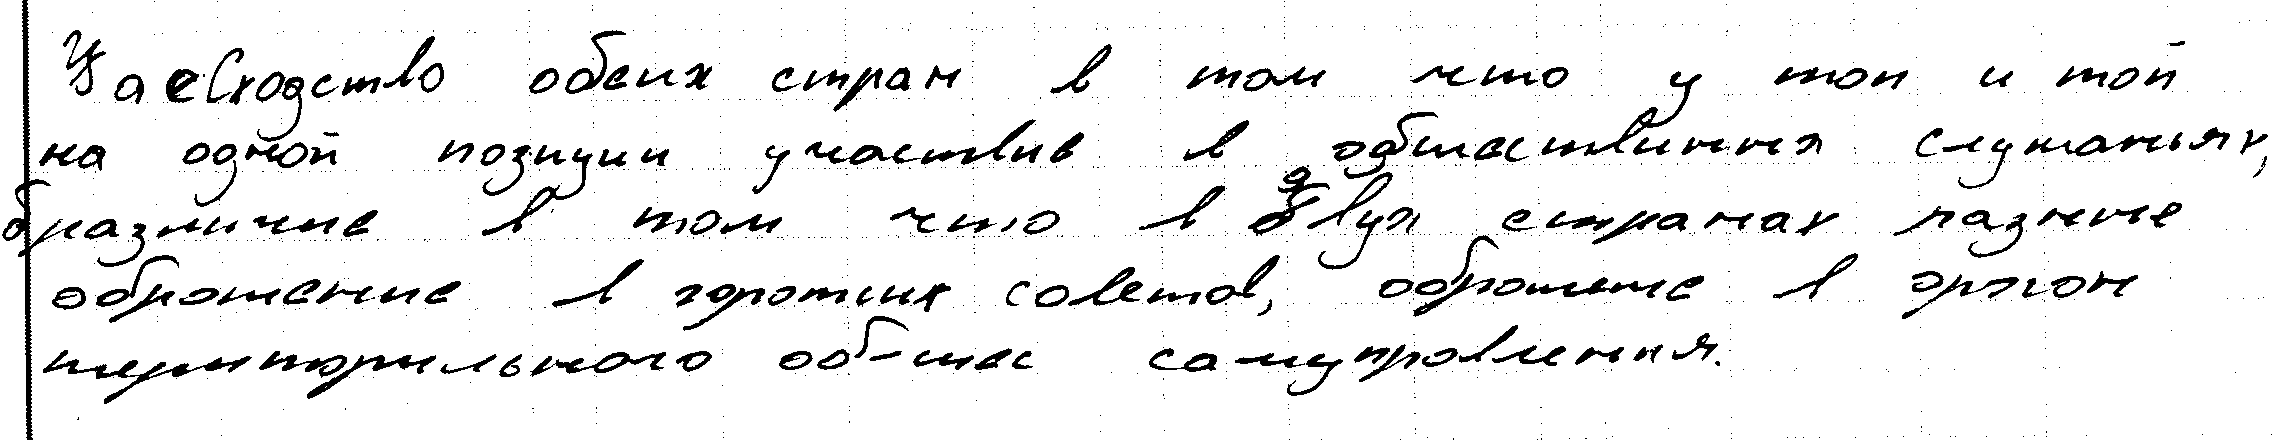 а сходство обеих стран в том что у той и той
на одной позиции участие в общественных слушаньях,
б различие в том что в двух странах разные
обрашение в горотских советов, оброшение в оргон
територильного об-щес самупровления.